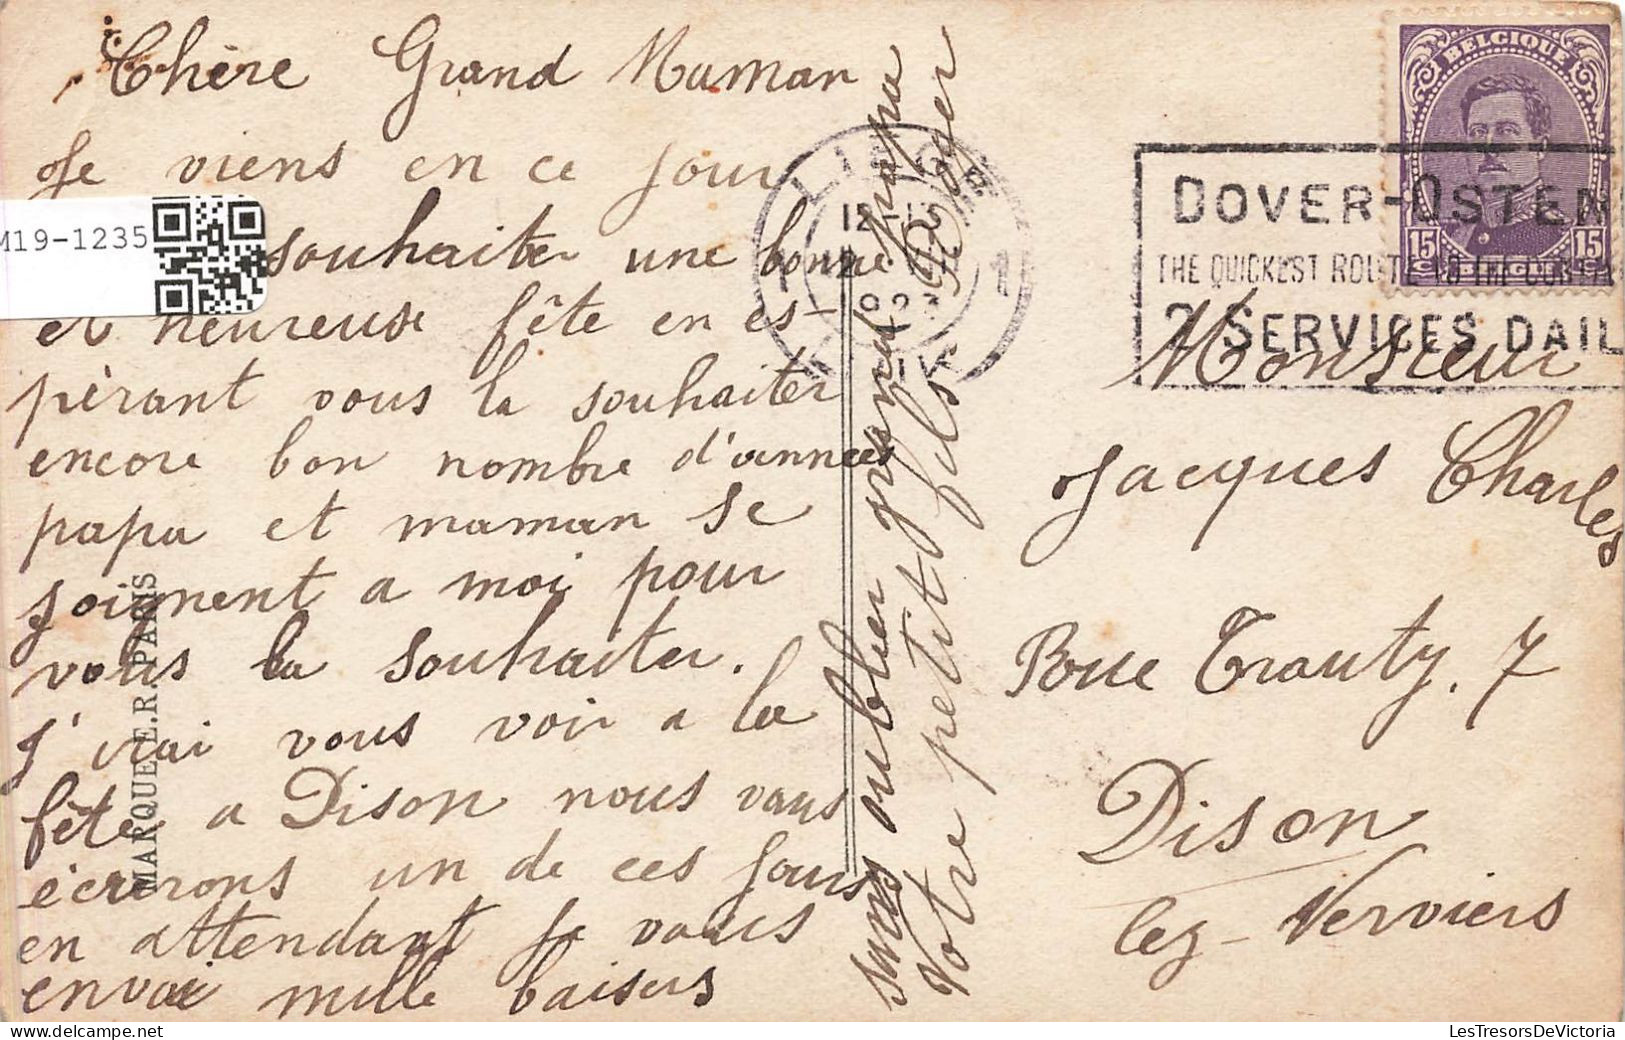 Chère Grand Maman
Je viens en ce jour
souhaiter une bonne
et heureuse fête en es-
pèrant vous la souhaiter
encore bon nombre d'années
papa et maman se
joignent a moi pour
vous la souhaiter.
j'irai vous voir a la
fête a Dison nous vous
écrirons un de ces jours
en attendant je vous
envoi mille baisers
sans oublier grand papa
Votre petit fils Roger
M19-1235
MARQUE E.R. PARIS
12-13
BELGIQUE
15 C BELGIE 15 C
DOVER-OSTEN
THE QUICKEST ROUTE TO THE
2 SERVICES DAIL
Monsieur
Jacques Charles
Rue Trauty. 7
Dison
lez-Verviers
LesTresorsDeVictoria